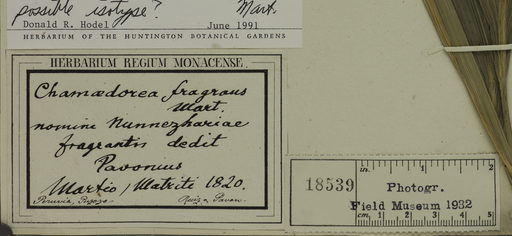 possible isotype? Mart.
Donald R. Hodel June 1991
HERBARIUM OF THE HUNTINGTON BOTANICAL GARDENS
HERBARIUM REGIUM MONACENSE.
Chamædorea fragrans
Mart.
nomine Nunnezhariae
fragrantis dedit
Pavonius
Martio, Matriti 1820.
Peruvia, Pozozo Ruiz & Pavon.
in. 1 2
18539 Photogr.
Field Museum 1932
cm. 1 2 3 4 5